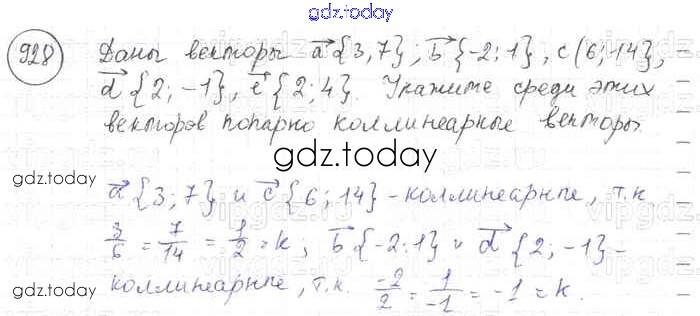 gdz.today
928 Даны векторы a{3,7}; b{-2;1}, c(6;14},
d{2;-1}, e{2;4}. Укажите среди этих
векторов попарно коллинеарные векторы.
gdz.today
gdz.today
a{3;7} и c{6;14} - коллинеарные, т.к
3/6 = 7/14 = 1/2 = k; b{-2;1} и d{2;-1} -
коллинеарные, т.к. -2/2 = 1/-1 = -1 = k.
gdz.today